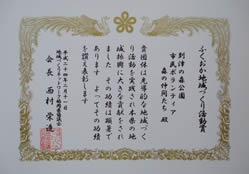 ふくおか地域づくり活動賞
到津の森公園
市民ボランティア
森の仲間たち 殿
貴団体は先導的な地域づく
り活動を実践され本県の地
域振興に大きな貢献をされ
ました その功績は顕著で
あります よってその功績
を讃え表彰します
平成二十四年二月十一日
会長 西村 栄造